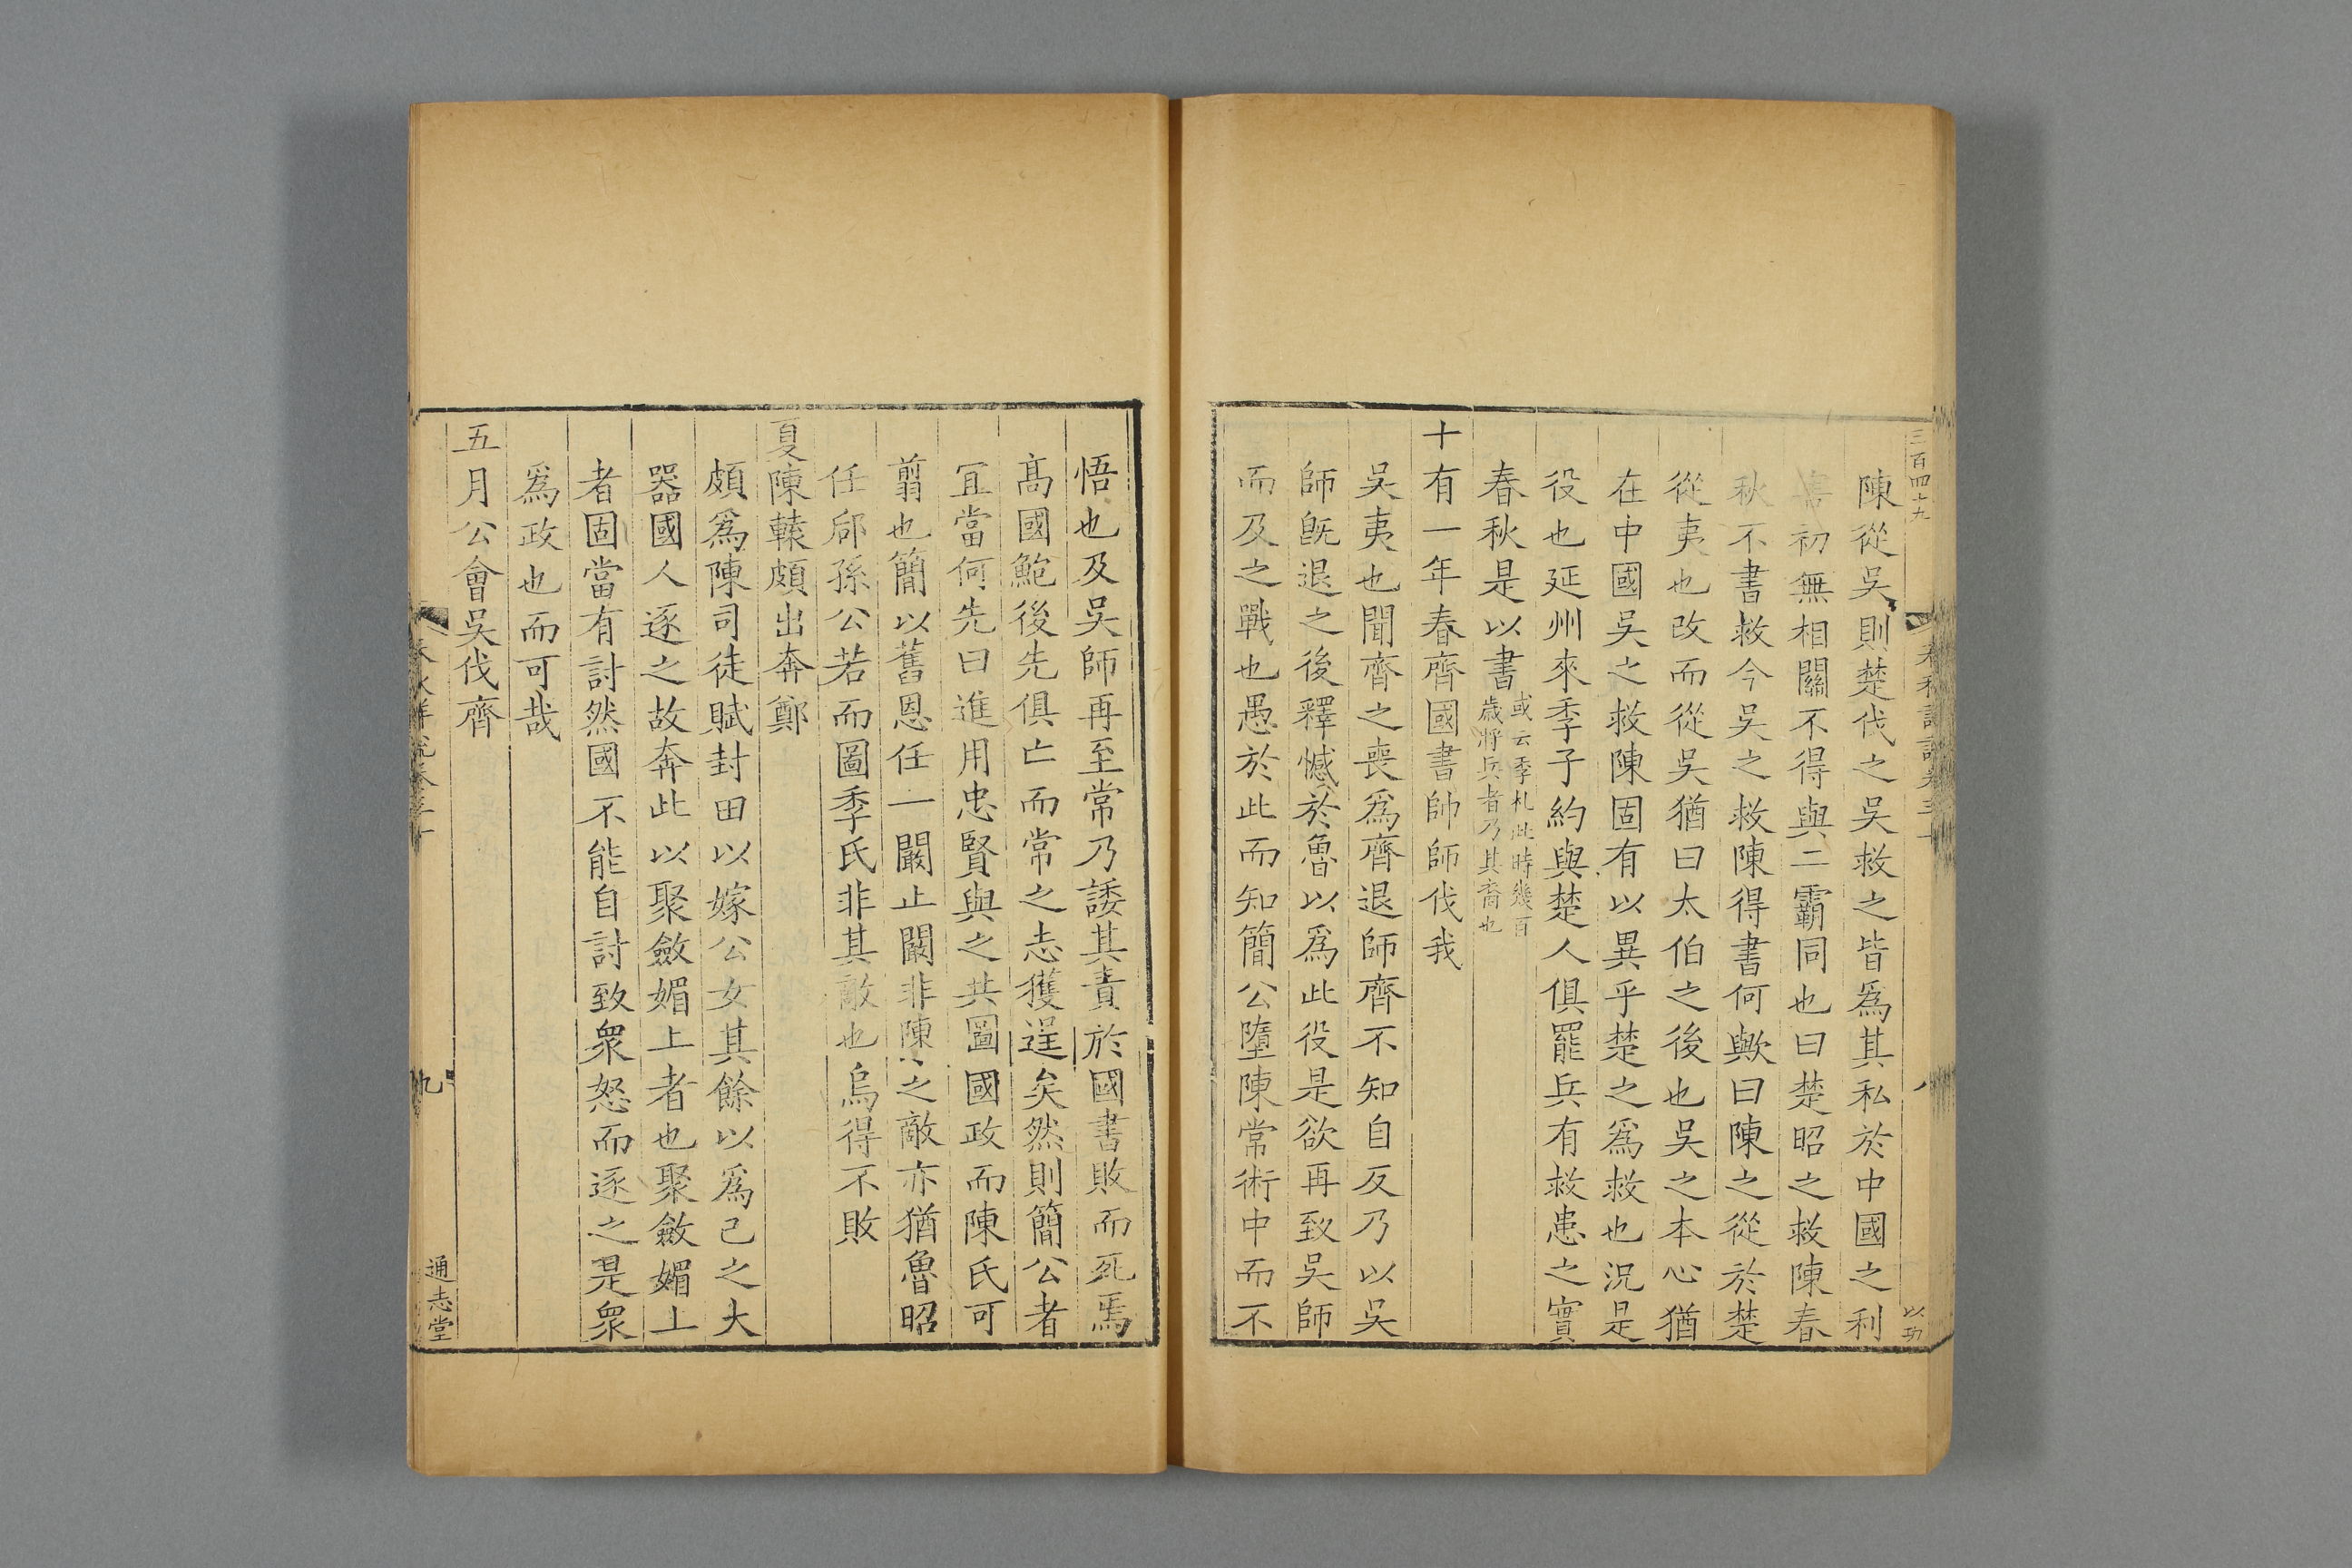 三百四十九
春秋詳說卷三十
八
以功
陳從吳則楚伐之吳救之皆爲其私於中國之利
害初無相關不得與二霸同也曰楚昭之救陳春
秋不書救今吳之救陳得書何歟曰陳之從於楚
從夷也改而從吳猶曰太伯之後也吳之本心猶
在中國吳之救陳固有以異乎楚之爲救也況是
役也延州來季子約與楚人俱罷兵有救患之實
春秋是以書
或云季札此時幾百
歲將兵者乃其裔也
十有一年春齊國書帥師伐我
吳夷也聞齊之喪爲齊退師齊不知自反乃以吳
師旣退之後釋憾於魯以爲此役是欲再致吳師
而及之戰也愚於此而知簡公墮陳常術中而不
悟也及吳師再至常乃諉其責於國書敗而死焉
髙國鮑後先俱亡而常之志獲逞矣然則簡公者
宜當何先曰進用忠賢與之共圖國政而陳氏可
翦也簡以舊恩任一闞止闞非陳之敵亦猶魯昭
任郈孫公若而圖季氏非其敵也烏得不敗
夏陳轅頗出奔鄭
頗爲陳司徒賦封田以嫁公女其餘以爲己之大
器國人逐之故奔此以聚斂媚上者也聚斂媚上
者固當有討然國不能自討致衆怒而逐之是衆
爲政也而可哉
五月公會吳伐齊
春秋詳說卷三十
九
通志堂